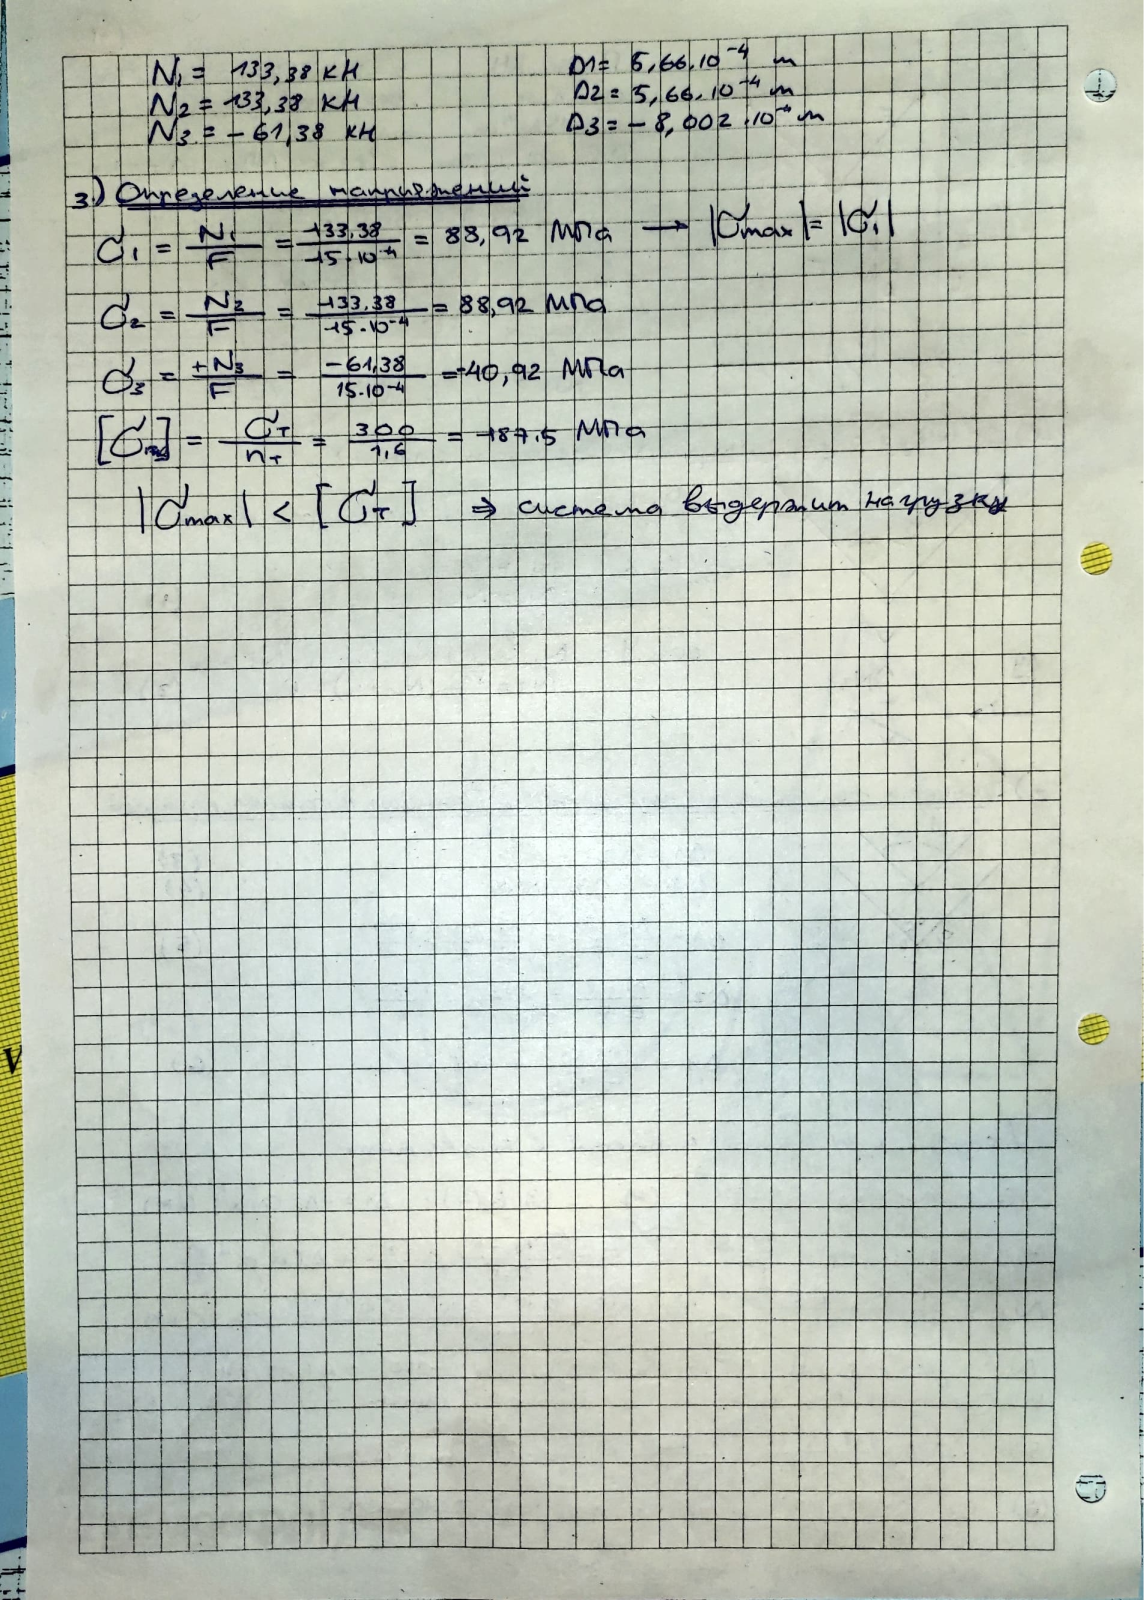 N₁ = 133,38 кН D1 = 5,66.10⁻⁴ м
N₂ = 133,38 кН D2 = 5,66.10⁻⁴ м
N₃ = - 61,38 кН D3 = - 8,002 .10⁻⁴ м
3.) Определение напряжений
σ₁ = N₁/F = 133,38/15.10⁻⁴ = 88,92 МПа → |σmax| = |σ₁|
σ₂ = N₂/F = 133,38/15.10⁻⁴ = 88,92 МПа
σ₃ = +N₃/F = -61,38/15.10⁻⁴ = -40,92 МПа
[σ] = σт/nт = 300/1,6 = 187.5 МПа
|σmax| < [σт] ⇒ система выдержит нагрузку